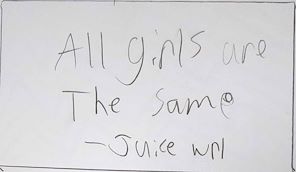 All girls are
The same
-Juice wrl